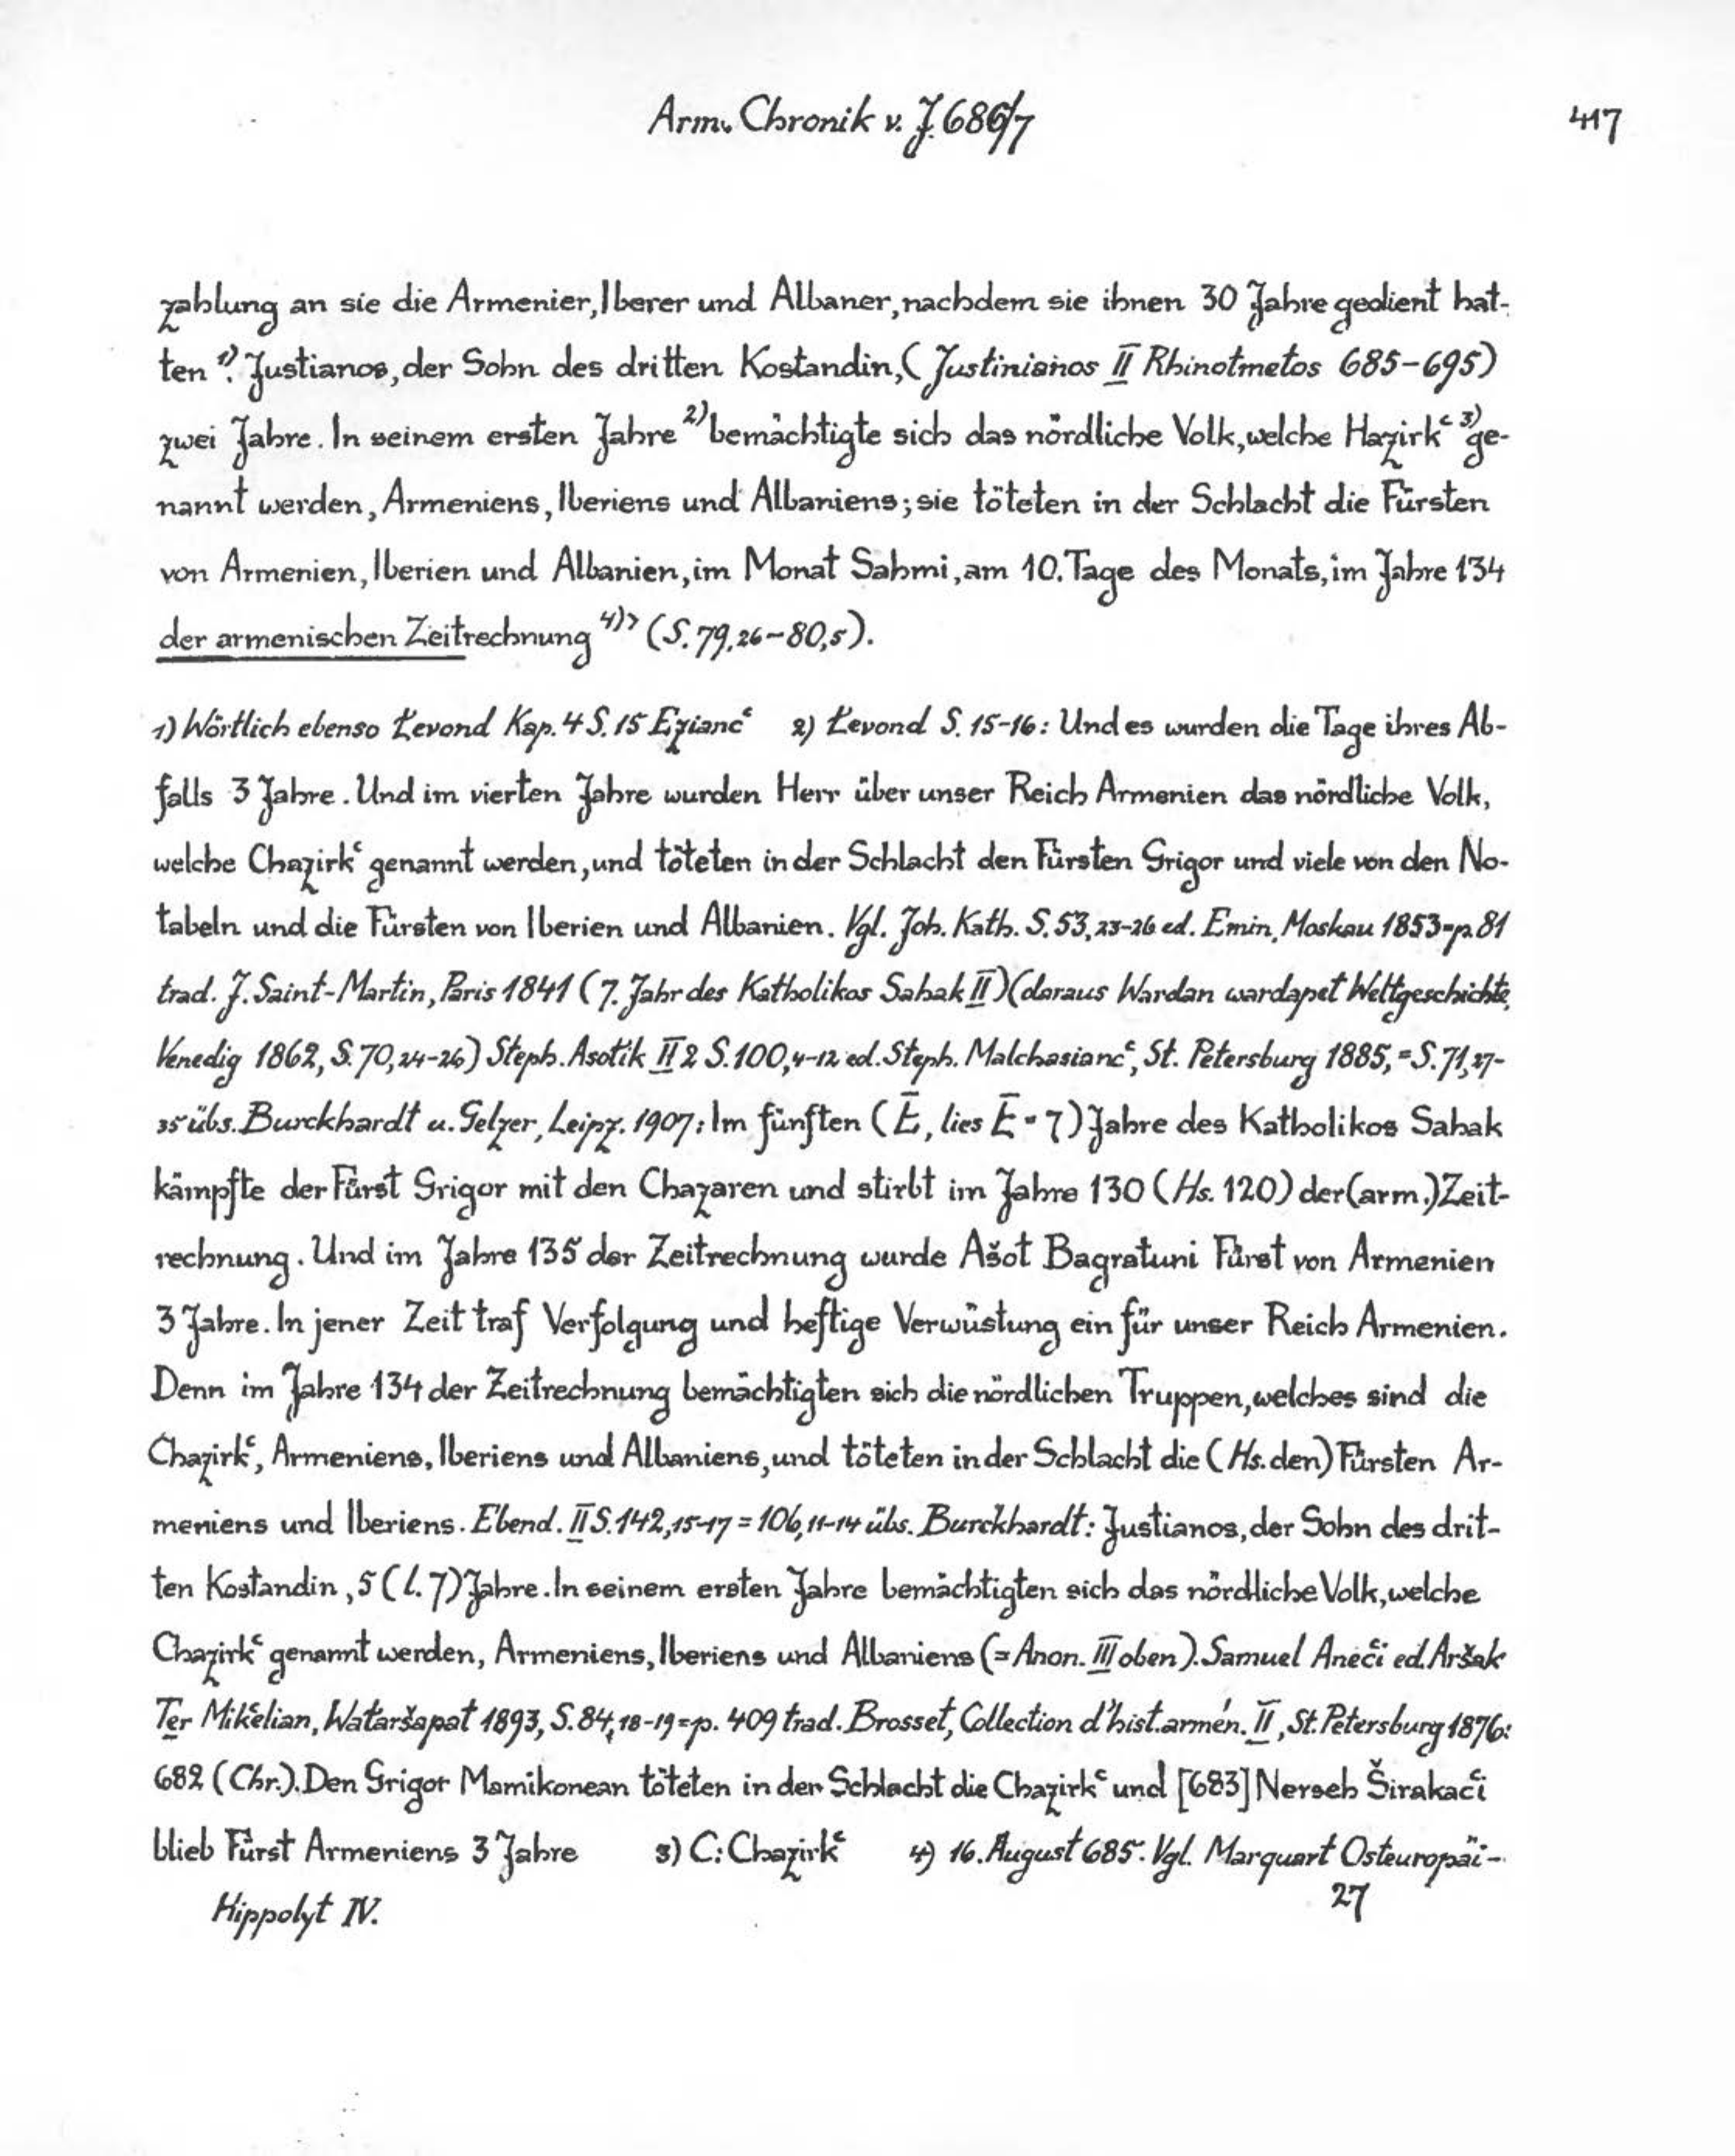 Arm. Chronik v. J. 686/7
417
zahlung an sie die Armenier, Iberer und Albaner, nachdem sie ihnen 30 Jahre gedient hat-
ten ¹⁾. Justianos, der Sohn des dritten Kostandin, (Justinianos II Rhinotmetos 685-695)
zwei Jahre. In seinem ersten Jahre ²⁾ bemächtigte sich das nördliche Volk, welche Hazirkʿ ³⁾ ge-
nannt werden, Armeniens, Iberiens und Albaniens; sie töteten in der Schlacht die Fürsten
von Armenien, Iberien und Albanien, im Monat Sahmi, am 10. Tage des Monats, im Jahre 134
der armenischen Zeitrechnung ⁴⁾> (S. 79,26-80,5).
1) Wörtlich ebenso Łevond Kap. 4 S. 15 Eziancʿ 2) Łevond S. 15-16: Und es wurden die Tage ihres Ab-
falls 3 Jahre. Und im vierten Jahre wurden Herr über unser Reich Armenien das nördliche Volk,
welche Chazirkʿ genannt werden, und töteten in der Schlacht den Fürsten Grigor und viele von den No-
tabeln und die Fürsten von Iberien und Albanien. Vgl. Joh. Kath. S. 53,23-26 ed. Emin, Moskau 1853=p. 81
trad. J. Saint-Martin, Paris 1841 (7. Jahr des Katholikos Sahak II) (daraus Wardan wardapet Weltgeschichte,
Venedig 1862, S. 70,24-26) Steph. Asotik II 2 S. 100,4-12 ed. Steph. Malchasiancʿ, St. Petersburg 1885, = S. 71,27-
35 übs. Burckhardt u. Gelzer, Leipz. 1907: Im fünften (Ē, lies Ē = 7) Jahre des Katholikos Sahak
kämpfte der Fürst Grigor mit den Chazaren und stirbt im Jahre 130 (Hs. 120) der (arm.) Zeit-
rechnung. Und im Jahre 135 der Zeitrechnung wurde Ašot Bagratuni Fürst von Armenien
3 Jahre. In jener Zeit traf Verfolgung und heftige Verwüstung ein für unser Reich Armenien.
Denn im Jahre 134 der Zeitrechnung bemächtigten sich die nördlichen Truppen, welches sind die
Chazirkʿ, Armeniens, Iberiens und Albaniens, und töteten in der Schlacht die (Hs. den) Fürsten Ar-
meniens und Iberiens. Ebend. II S. 142,15-17 = 106,11-14 übs. Burckhardt: Justianos, der Sohn des drit-
ten Kostandin, 5 (l. 7) Jahre. In seinem ersten Jahre bemächtigten sich das nördliche Volk, welche
Chazirkʿ genannt werden, Armeniens, Iberiens und Albaniens (= Anon. III oben). Samuel Anecʿi ed. Aršak
Ter Mikʿelian, Wałaršapat 1893, S. 84,18-19 = p. 409 trad. Brosset, Collection d'hist. armén. II, St. Petersburg 1876:
682 (Chr.). Den Grigor Mamikonean töteten in der Schlacht die Chazirkʿ und [683] Nerseh Širakacʿi
blieb Fürst Armeniens 3 Jahre 3) C: Chazirkʿ 4) 16. August 685. Vgl. Marquart Osteuropäi-
Hippolyt IV.
27